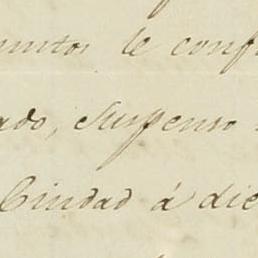 le conf
ado, suspenso
Ciudad á die